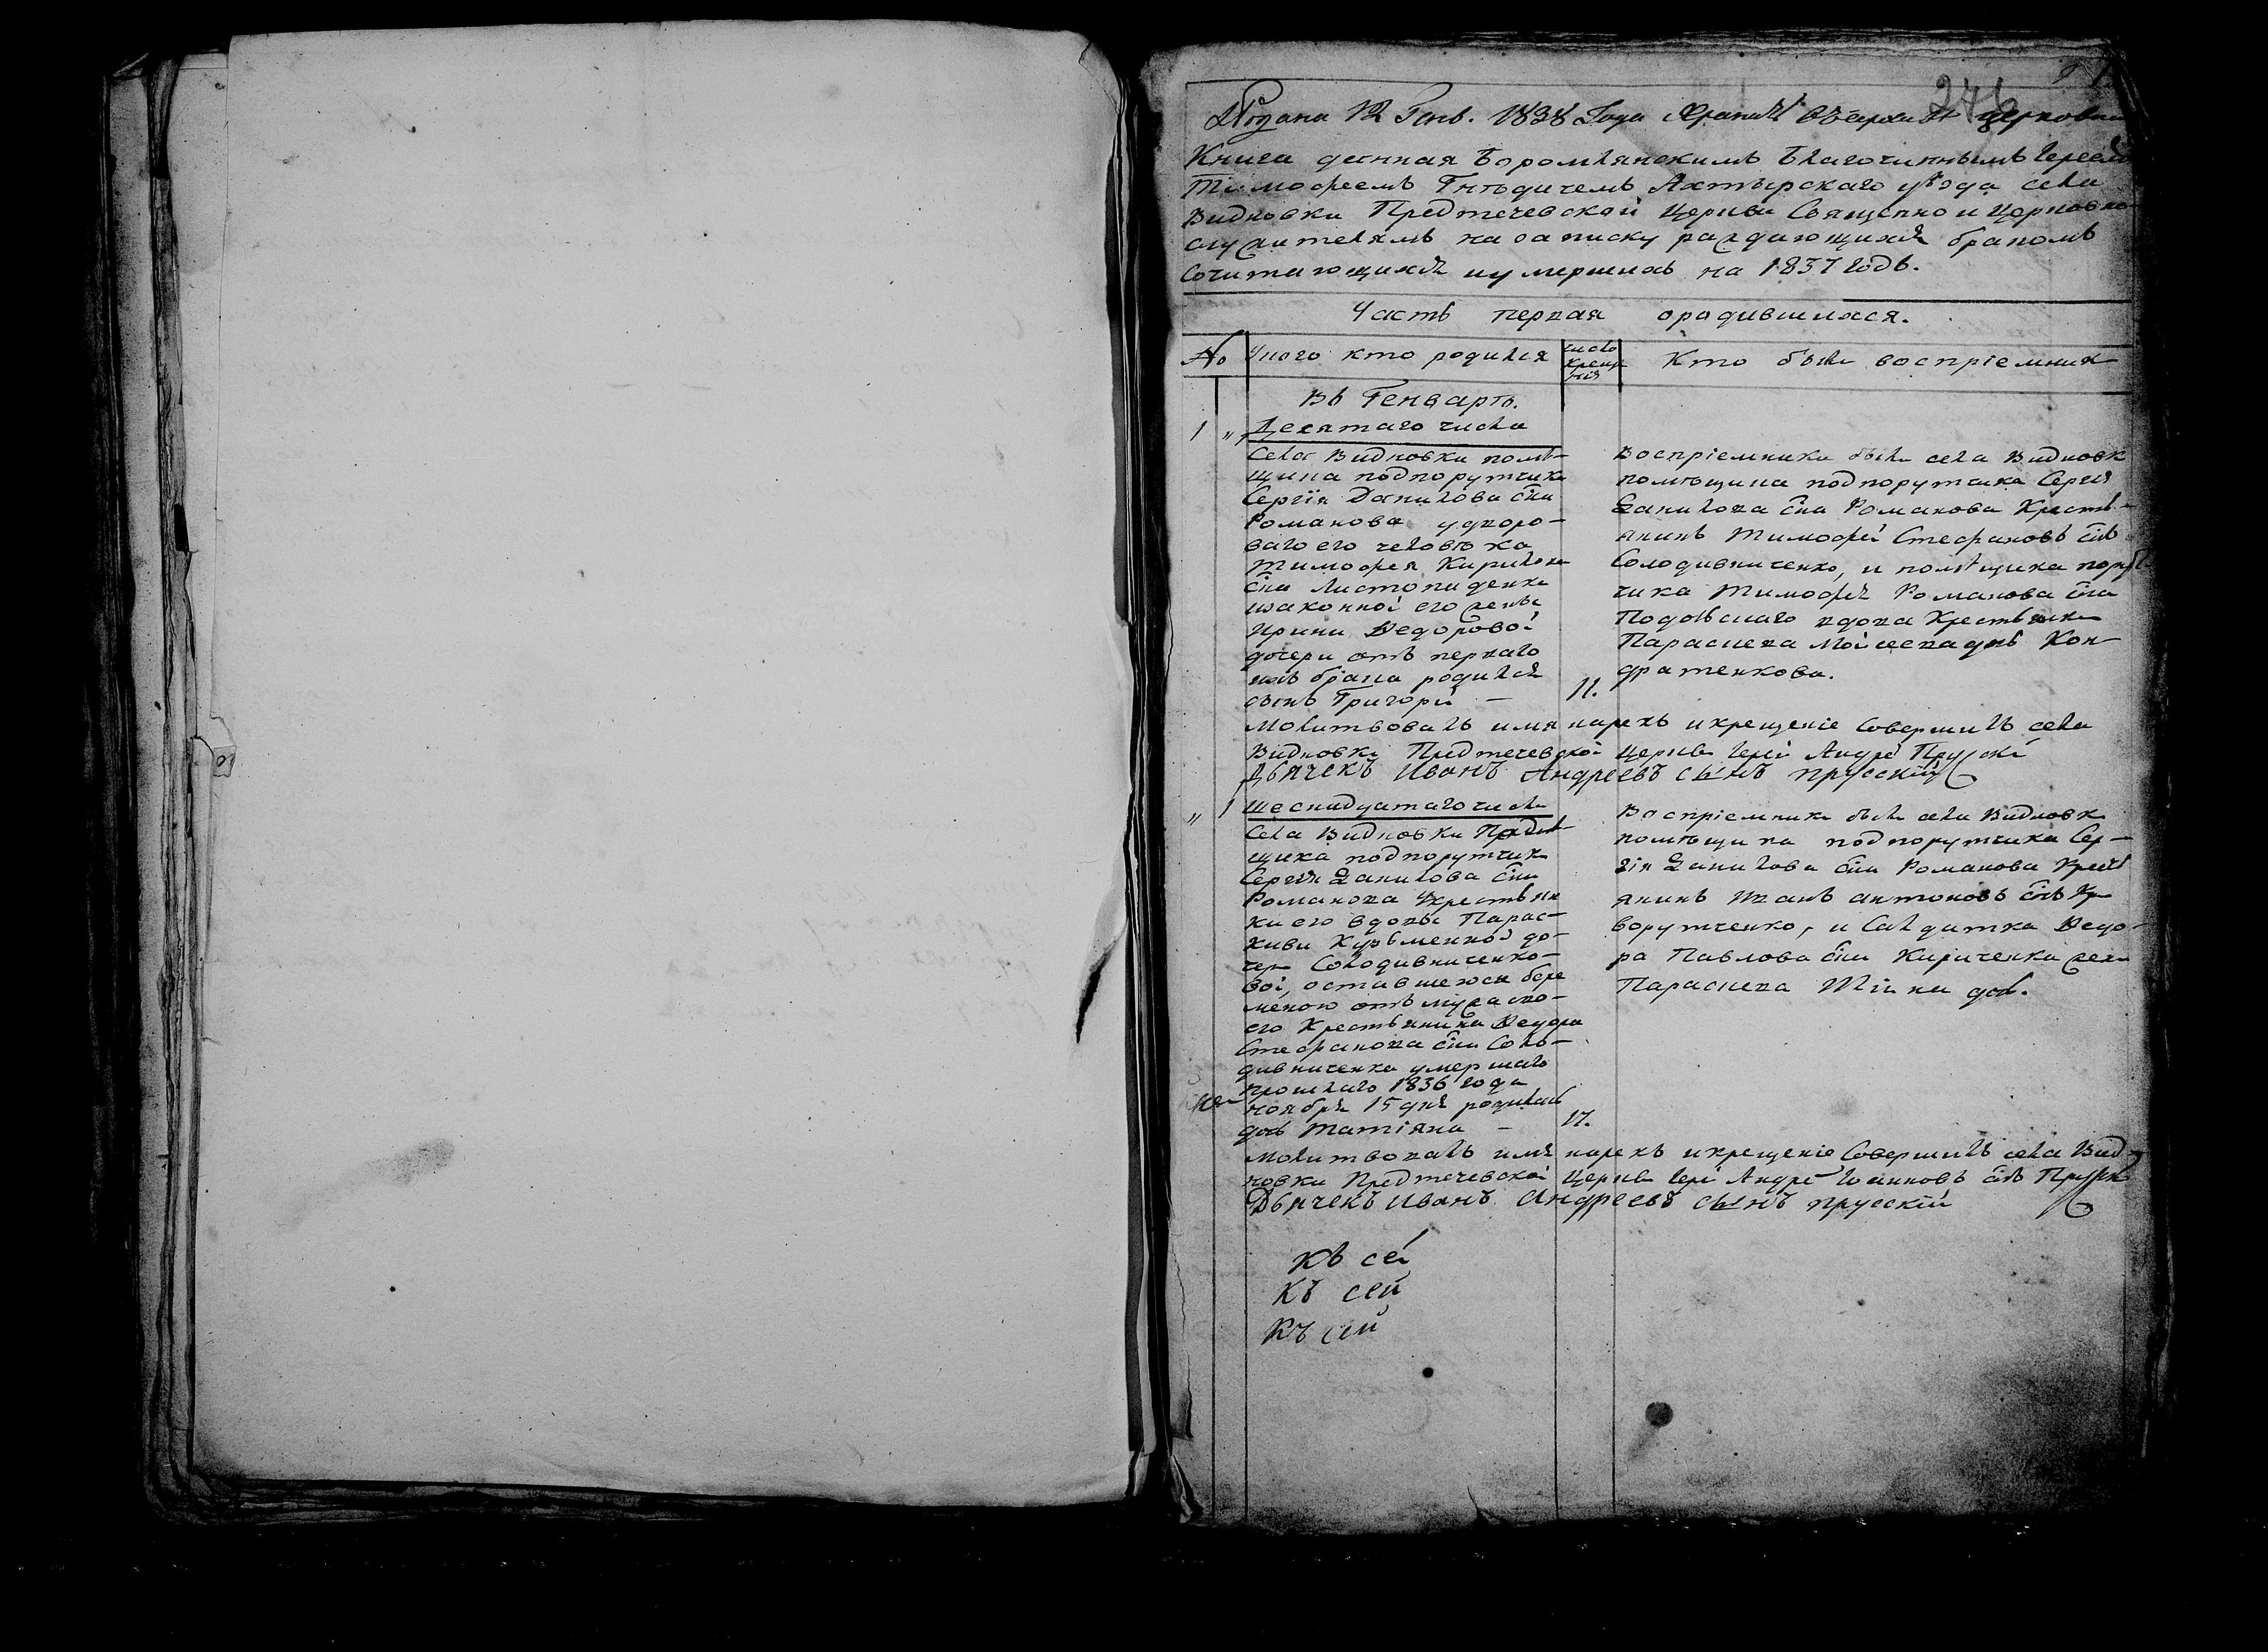 246
Подана 12 Генв. 1838 Года
Книга данная Боромлянскимъ Благочиннымъ Іереемъ
Тимофеемъ Гнѣдичемъ Ахтырскаго уѣзда села
Видновки Предтечевской Церкви Священно и Церковно
служителямъ на записку раждающихся бракомъ
Сочитающихся и умершихъ на 1837 годъ.
Часть первая ородившихся.
№ Укого кто родился число крещенія Кто былъ воспріемник
Въ Генварѣ.
1 " Десятаго числа
Села Видновки помѣ-
щика подпорутчика
Сергія Данилова сна
Романова удворо-
ваго его человѣка
Тимофея Кирилова
сна Листопаденка
изаконной его жены
Ирины Ѳедоровой
дочери отъ перваго
ихъ брака родился
сынъ Григорій — 11.
Воспріемники были села Видновк
помѣщика подпорутчика Сергія
Данилова сна Романова Кресть-
янинъ Тимофей Стефановъ снъ
Солодивниченко, и помѣщика порут
чика Тимофея Романова сна
вдова Крестьянка
Параскева Моісеева дчь Кон-
дратенкова.
Молитвовалъ имя нарекъ икрещеніе Совершилъ села
Видновки Предтечевской Церкви Іерей Андрей Прускій
Дьячекъ Иванъ Андреевъ сынъ прусскій
" 1 Шеснадцатаго числа
Села Видновки
щика подпорутчика
Сергія Данилова сна
Романова Укрестьян
ки его вдовы Парас-
киви Кузьменной до-
чери Солодивниченко-
вой, оставшеюся бере
меною отъ мужа сво-
его Крестьянина Ѳедора
Стефанова сна Соло-
дивниченка умершаго
прошлаго 1836 года
ноября 15 дня родилась
дочь Татіяна — 17.
Воспріемники были села Видновк
помѣщика подпорутчика Сер-
гія Данилова сна Романова Крест
янинъ Иванъ антоновъ снъ Кри
ворутченко, и Салдатка Ѳедо-
ра Павлова сна Кириченка жена
Параскева
Молитвовалъ имя нарекъ икрещеніе Совершилъ села Вид-
новки Предтечевской Церкви Іерей Андрей Іоанновъ снъ Прускій
Дьячекъ Иванъ Андреевъ сынъ прусскій
Къ сей
Къ сей
Къ сей